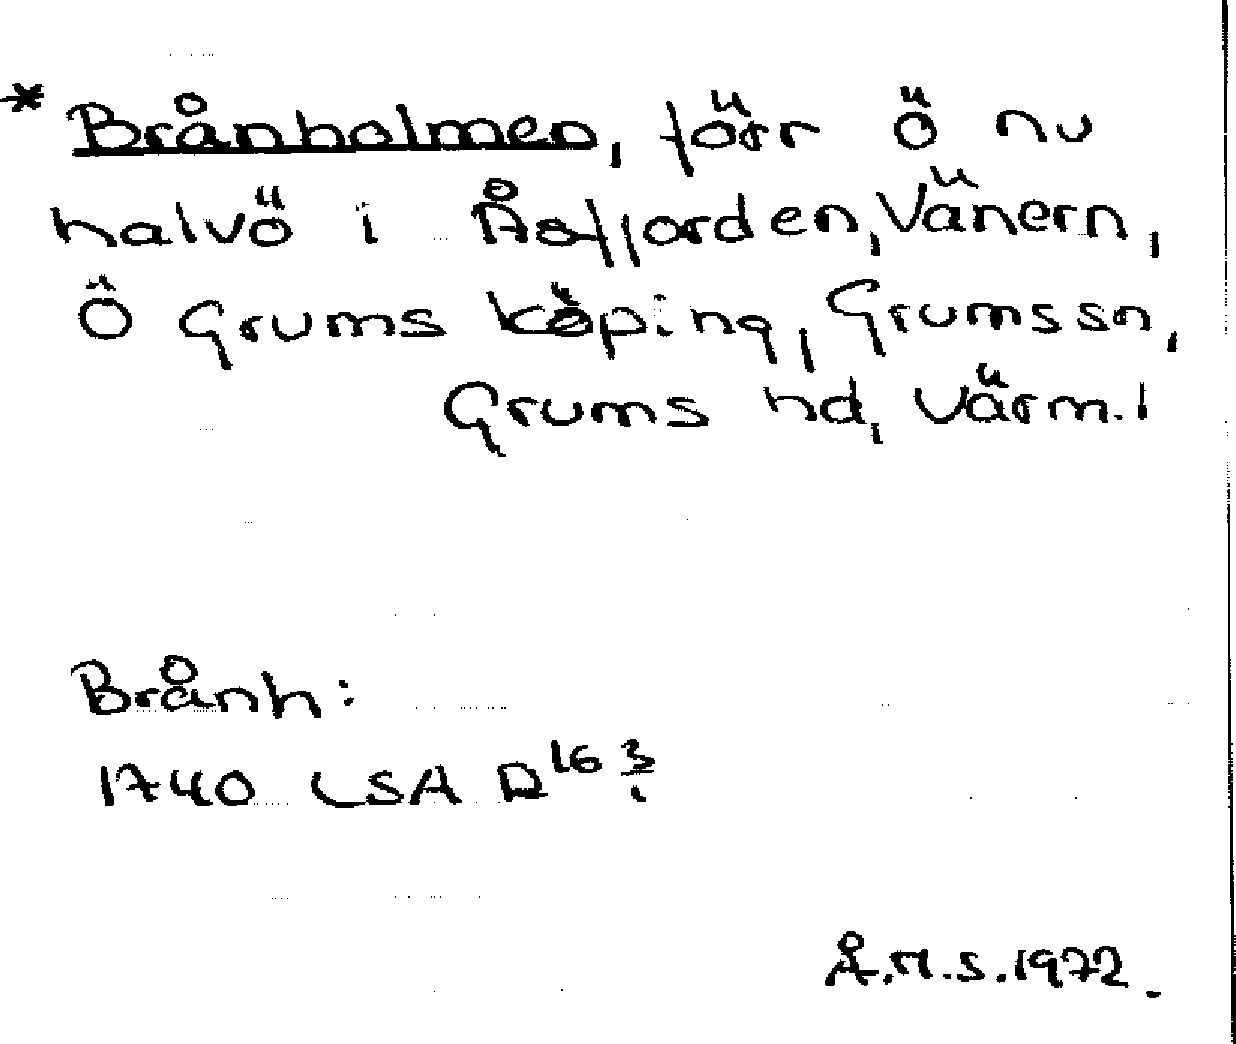 * Brånholmen, förr ö nu
halvö i Åsfjorden, Vänern,
Ö Grums köping, Grums sn,
Grums hd, Värm. l
Brånh:
1740 LSA R 16 3/1
Å.M.S. 1972.